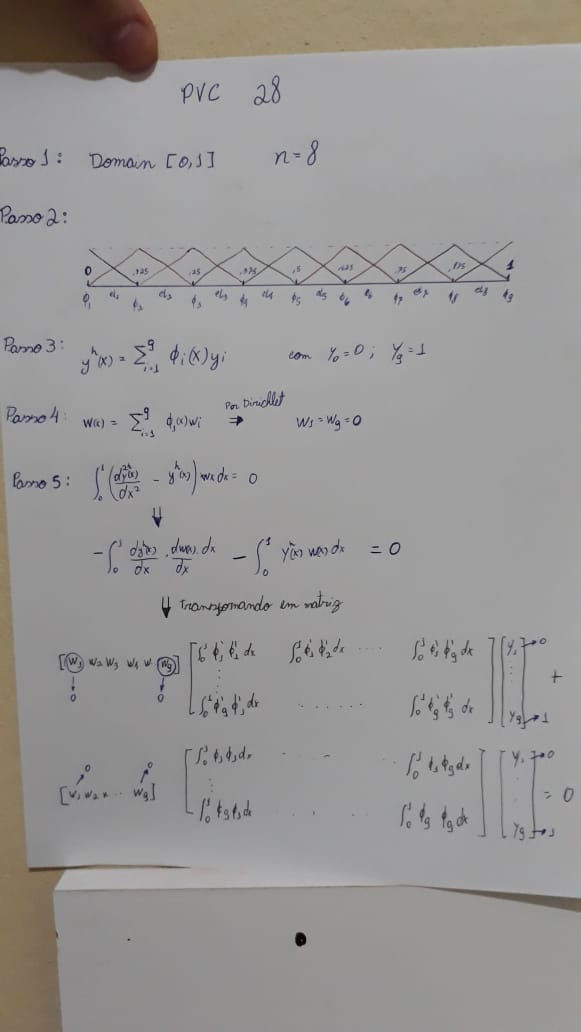 PVC 28
Passo 1: Domain [0,1] n=8
Passo 2:
0 .125 .25 .375 .5 .625 .75 .875 1
ϕ₁ el₁ ϕ₂ el₂ ϕ₃ el₃ ϕ₄ el₄ ϕ₅ el₅ ϕ₆ el₆ ϕ₇ el₇ ϕ₈ el₈ ϕ₉
Passo 3: yʰ(x) = ∑ᵢ₌₁⁹ ϕᵢ(x)yᵢ com Y₀=0; Y₉=1
Passo 4: W(x) = ∑ᵢ₌₁⁹ ϕᵢ(x)wᵢ Por Dirichlet ⇒ W₁=W₉=0
Passo 5: ∫₀¹ (d²yʰ(x)/dx² - yʰ(x)) wx dx = 0
⇓
-∫₀¹ dyʰ(x)/dx . dw(x)/dx . dx - ∫₀¹ yʰ(x) w(x) dx = 0
⇓ Transformando em matriz
[w₁ w₂ w₃ w₄ w. w₉] [∫₀¹ ϕ₁' ϕ₁' dx ∫₀¹ ϕ₁' ϕ₂' dx ..... ∫₀¹ ϕ₁' ϕ₉' dx] [Y₁ → 0
0 0 ∫₀¹ ϕ₉' ϕ₁' dx ...... ∫₀¹ ϕ₉' ϕ₉' dx] Y₉ → 1] +
0 0 [∫₀¹ ϕ₁ ϕ₁ dx ... ∫₀¹ ϕ₁ ϕ₉ dx] [Y₁ → 0
[w₁ w₂ ... w₉] ∫₀¹ ϕ₉ ϕ₁ dx .... ∫₀¹ ϕ₉ ϕ₉ dx] Y₉ → 1] = 0